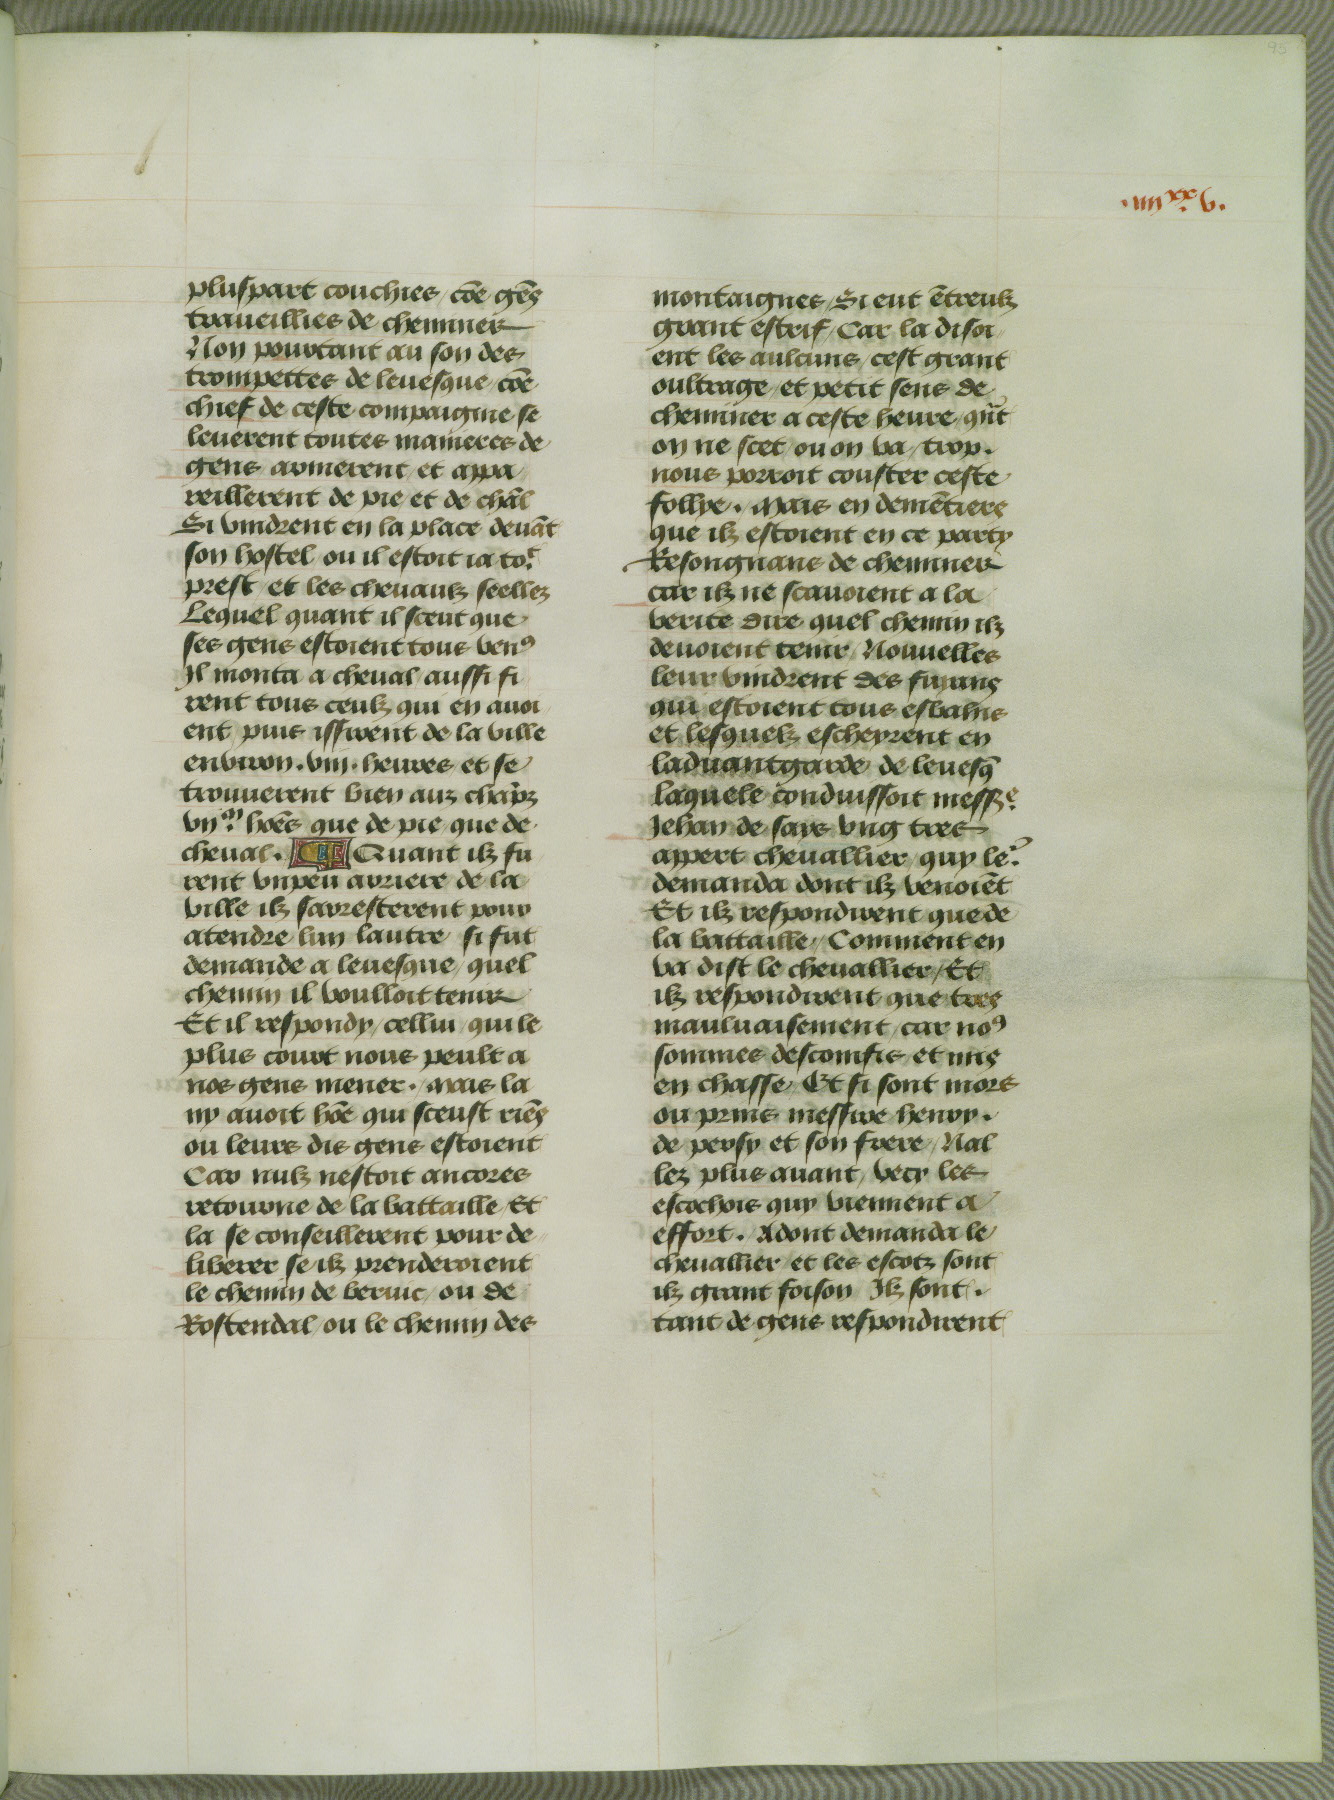 95
.iiii.xx v.
pluspart couchies / cõe gẽs
traueillies de cheminer
Non pourtant au son des
trompettes de leuesque / cõe
chief de ceste compaignie se
leuerent toutes manieres de
gens armerent et appa
reillerent de pie et de chãl
Si vindrent en la place deuãt
son hostel ou il estoit ia toꝰ
prest et les cheuaulz seellez
Lequel quant il sceut que
ses gens estoient tous venꝰ
Il monta a cheual aussi fi
rent tous ceulz qui en auoi
ent / puis issirent de la ville
enuiron .viii. heures et se
trouuerent bien auz chãpz
vijᵐ hões que de pie que de
cheual. Quant ilz fu
rent vnpeu arriere de la
ville ilz sarresterent pour
atendre lun lautre si fut
demande a leuesque / quel
chemin il voulloit tenir
Et il respondy / cellui qui le
plus court nous peult a
nos gens mener. Mais la
ny auoit hõe qui sceust riẽs
ou leurs dis gens estoient
Car nulz nestoit ancores
retourne de la battaille / Et
la se conseillerent pour de
liberer se ilz prenderoient
le chemin de beruic / ou de
Rostendal / ou le chemin des
montaignes / Si eut ẽtreulz
grant estrif / Car la disoi
ent les aulcuns / cest grant
oultrage / et petit sens de
cheminer a ceste heure / qñt
on ne scet ou on va / trop.
nous porroit couster ceste
follye. Mais en demẽtieres
que ilz estoient en ce party
Resongnans de cheminer
car ilz ne scauoient a la
verite dire quel chemin ilz
deuoient tenir / Nouuelles
leur vindrent des fuians
qui estoient tous esbahis
et lesquelz escheyrent en
laduantgarde de leuesq̃
laquele conduissoit messʳᵉ
Jehan de says vng tres
appert cheuallier / quy leʳ
demanda dont ilz venoiẽt
Et ilz respondirent que de
la battaille / Comment en
va dist le cheuallier / Et
ilz respondirent que tres
mauluaisement / car noꝰ
sommes descomfis et mis
en chasse / Et si sont mors
ou prins messire henry.
de persy et son frere / Nal
lez plus auant / vecy les
escochois quy viennent a
effort. Adont demanda le
cheuallier et les escotz sont
ilz grant foison Ilz sont.
tant de gens respondirent